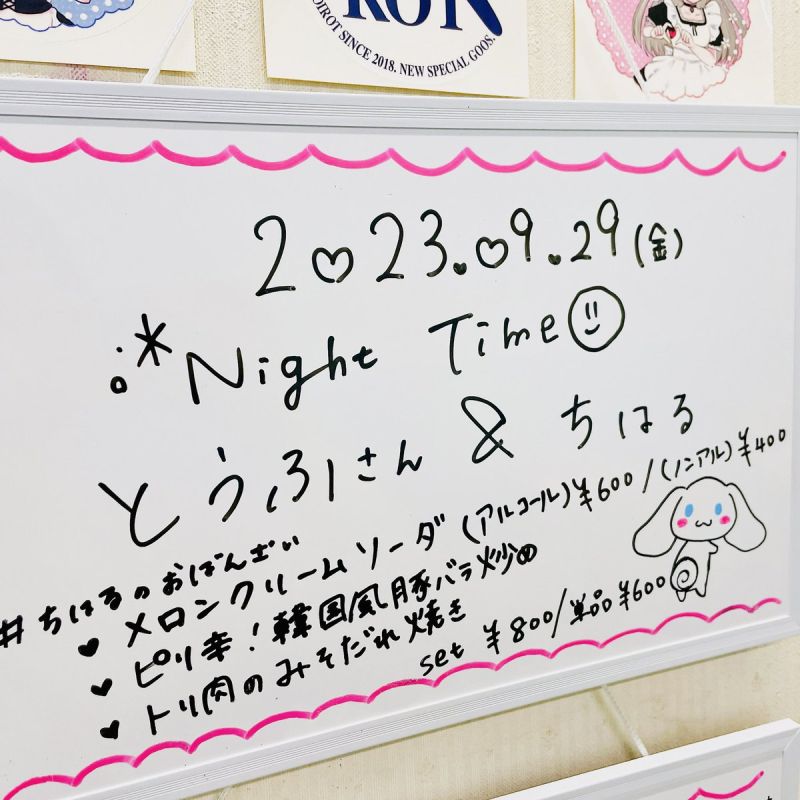 ROY
OIROT SINCE 2018. NEW SPECIAL GOOS.
2023.09.29(金)
Night Time
とうふさん & ちはる
#ちはるのおばんざい
メロンクリームソーダ(アルコール)¥600/(ノンアル)¥400
ピリ辛!韓国風豚バラ炒め
トリ肉のみそだれ焼き
set ¥800/単品¥600